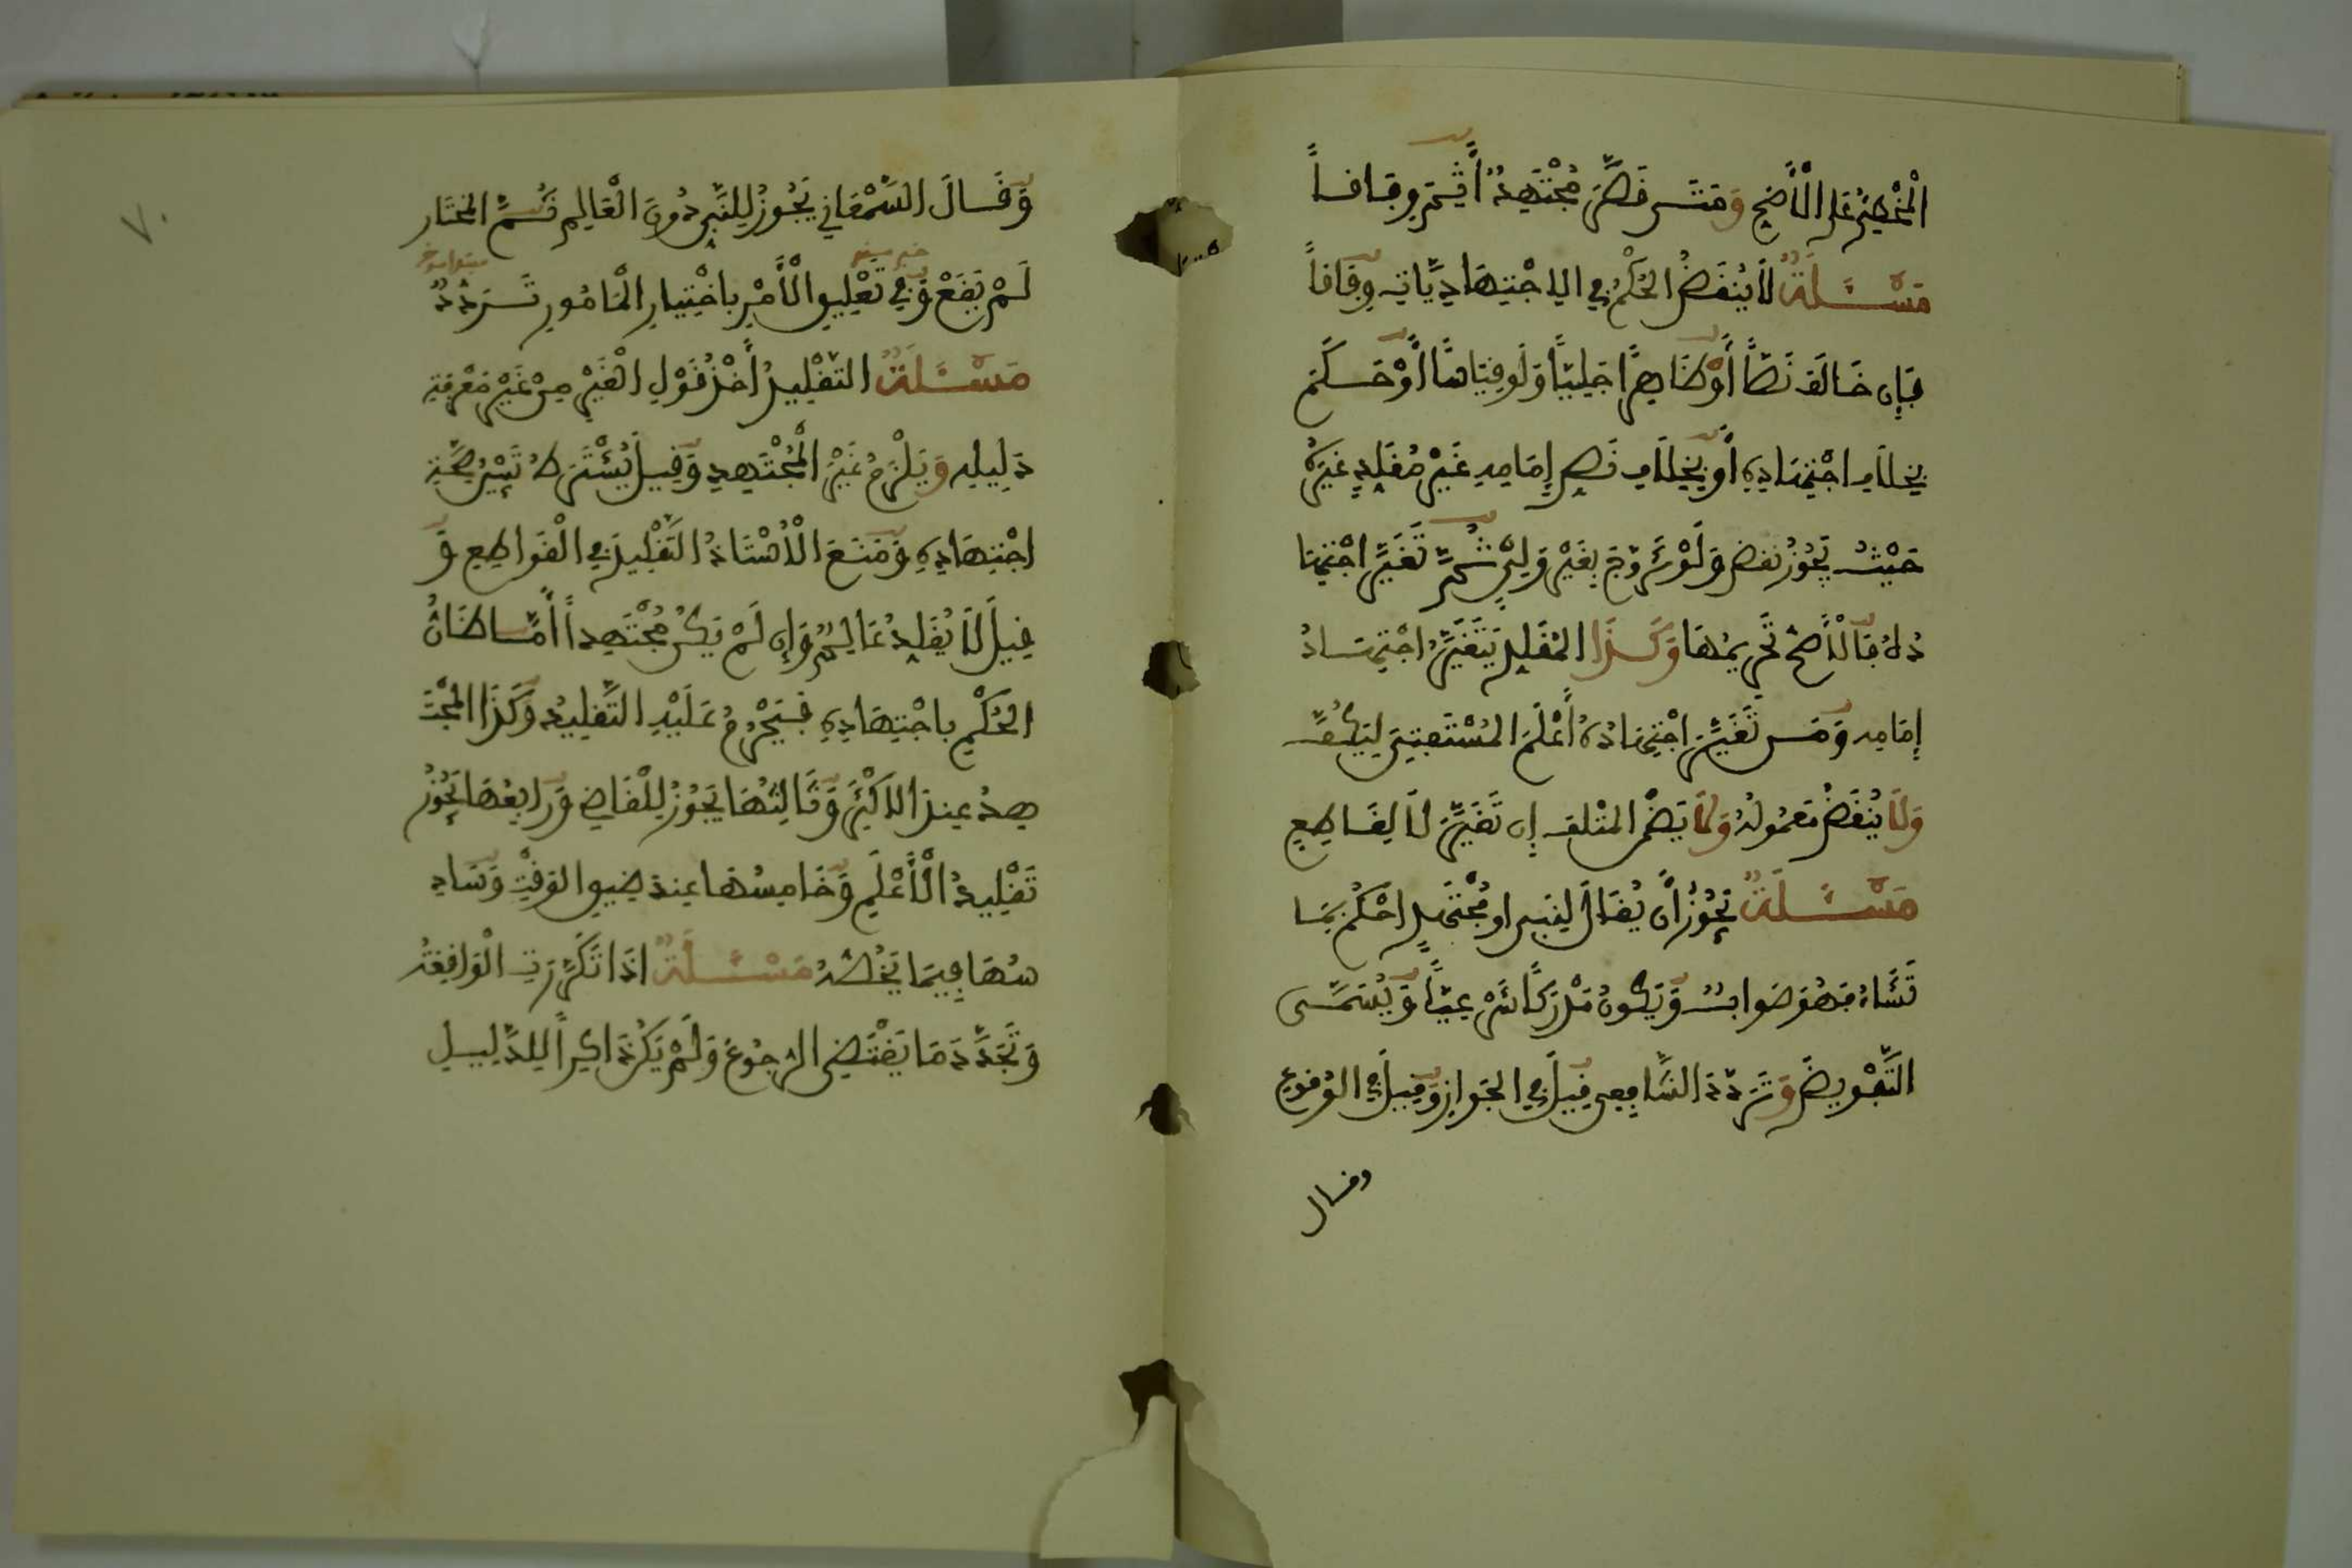 الْمُخْطِئُ عَلَى الْأَصَحِّ وَمَتَى قَصَّرَ مُجْتَهِدٌ أَثِمَ وِفَاقاً
مَسْـَٔلَةٌ لاَ يُنْقَضُ الْحُكْمُ فِي الِاجْتِهَادِيَّاتِ وِفَاقاً
فَإِن خَالَفَ نَصًّا أَوْ ظَاهِرًا جَلِيًّا وَلَو قِيَاسًا أَوْ حَكَمَ
بِخِلَافِ اجْتِهَادِهِ أَوْ بِخِلَافِ نَصِّ إِمَامِهِ غَيْرَ مُقَلِّدٍ غَيْرَهُ
حَيْثُ يَجُوزُ نقض وَلَوْ تَزَوَّجَ بِغَيْرِ وَلِيٍّ ثُمَّ تَغَيَّرَ اجْتِهَا
دُهُ فَالْأَصَحُّ تَحْرِيمُهَا وَكَذَا المُقَلِّدُ يَتَغَيَّرُ اجْتِهَادُ
إِمَامِهِ وَمَن تَغَيَّرَ اجْتِهَادُهُ أَعْلَمَ الْمُسْتَفْتِيَ لِيَكُفَّ
وَلَا يُنْقَضُ مَعْمُولُهُ وَلَا يَضْمَنُ الْمُتْلَفَ إِن تَغَيَّرَ لَا لِقَاطِعٍ
مَسْـَٔلَةٌ يَجُوزُ أَنْ يُقَالَ لِنَبِيٍّ او مُجْتَهِدٍ احْكُمْ بِمَا
تَشَاءُ فَهُوَ صَوَابٌ وَيَكُونُ مَدْرَكًا شَرْعِيًّا وَيُسَمَّى
التَّفْوِيضَ وَتَرَدَّدَ الشَّافِعِي قِيلَ فِي الجَوَازِ وَقِيلَ فِي الوُقُوعِ
وقال
وَقَالَ السَّمْعَانِي يَجُوزُ لِلنَّبِيِّ دُونَ الْعَالِمِ ثُمَّ المُخْتَار
لَمْ يَقَعْ وَفِي تَعْلِيقِ الْأَمْرِ بِاخْتِيَارِ الْمَأْمُورِ تَرَدُّدٌ
مَسْـَٔلَةٌ التَّقْلِيدُ أَخْذُ قَوْلِ الْغَيْرِ مِنْ غَيْرِ مَعْرِفَةِ
دَلِيلِهِ وَيَلْزَمُ غَيْرَ الْمُجْتَهِدِ وَقِيلَ يُشْتَرَطُ تَبَيُّنُ صِحَّةِ
اجْتِهَادِهِ وَمَنَعَ الْأُسْتَاذُ التَّقْلِيدَ فِي الْقَوَاطِعِ وَ
قِيلَ لَا يُقَلِّدُ عَالِمٌ وَإِن لَمْ يَكُنْ مُجْتَهِداً أَمَّا ظَانُّ
الْحُكْمِ بِاجْتِهَادِهِ فَيَحْرُمُ عَلَيْهِ التَّقْلِيدُ وَكَذَا المُجْتَ
هِدُ عِندَ الْأَكْثَرِ وَثَالِثُهَا يَجُوزُ لِلْقَاضِي وَرَابِعُهَا يَجُوزُ
تَقْلِيدُ الْأَعْلَمِ وَخَامِسُهَا عِندَ ضِيقِ الوَقْتِ وَسَادِ
سُهَا فِيمَا يَخُصُّهُ مَسْـَٔلَةٌ اذَا تَكَرَّرَتِ الْوَاقِعَةُ
وَتَجَدَّدَ مَا يَقْتَضِي الرُّجُوعَ وَلَمْ يَكُنْ ذَاكِراً لِلدَّلِيلِ
٧٠